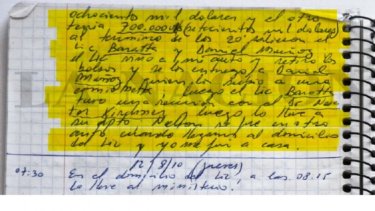 ochocientos mil dolares y el otro
tenia 700.000 (setecientos mil dolares)
al termino a los 20 minutos el
Lic Baratta y Daniel Muñoz
el Lic a mi auto y retiro los
bolsos y se los entrego a Daniel
Muñoz, quien los en una
camioneta, luego el Lic Baratta
tuvo una reunion con el Dr Nes-
tor Kirchner y luego lo lleve a
su dpto. Nelson se fue en otro
auto, cuando llegamos al domicilio
del Lic y yo me fui a casa.
12/8/10 (jueves)
07:30 En el domicilio del Lic, a las 08:15
lo lleve al ministerio.